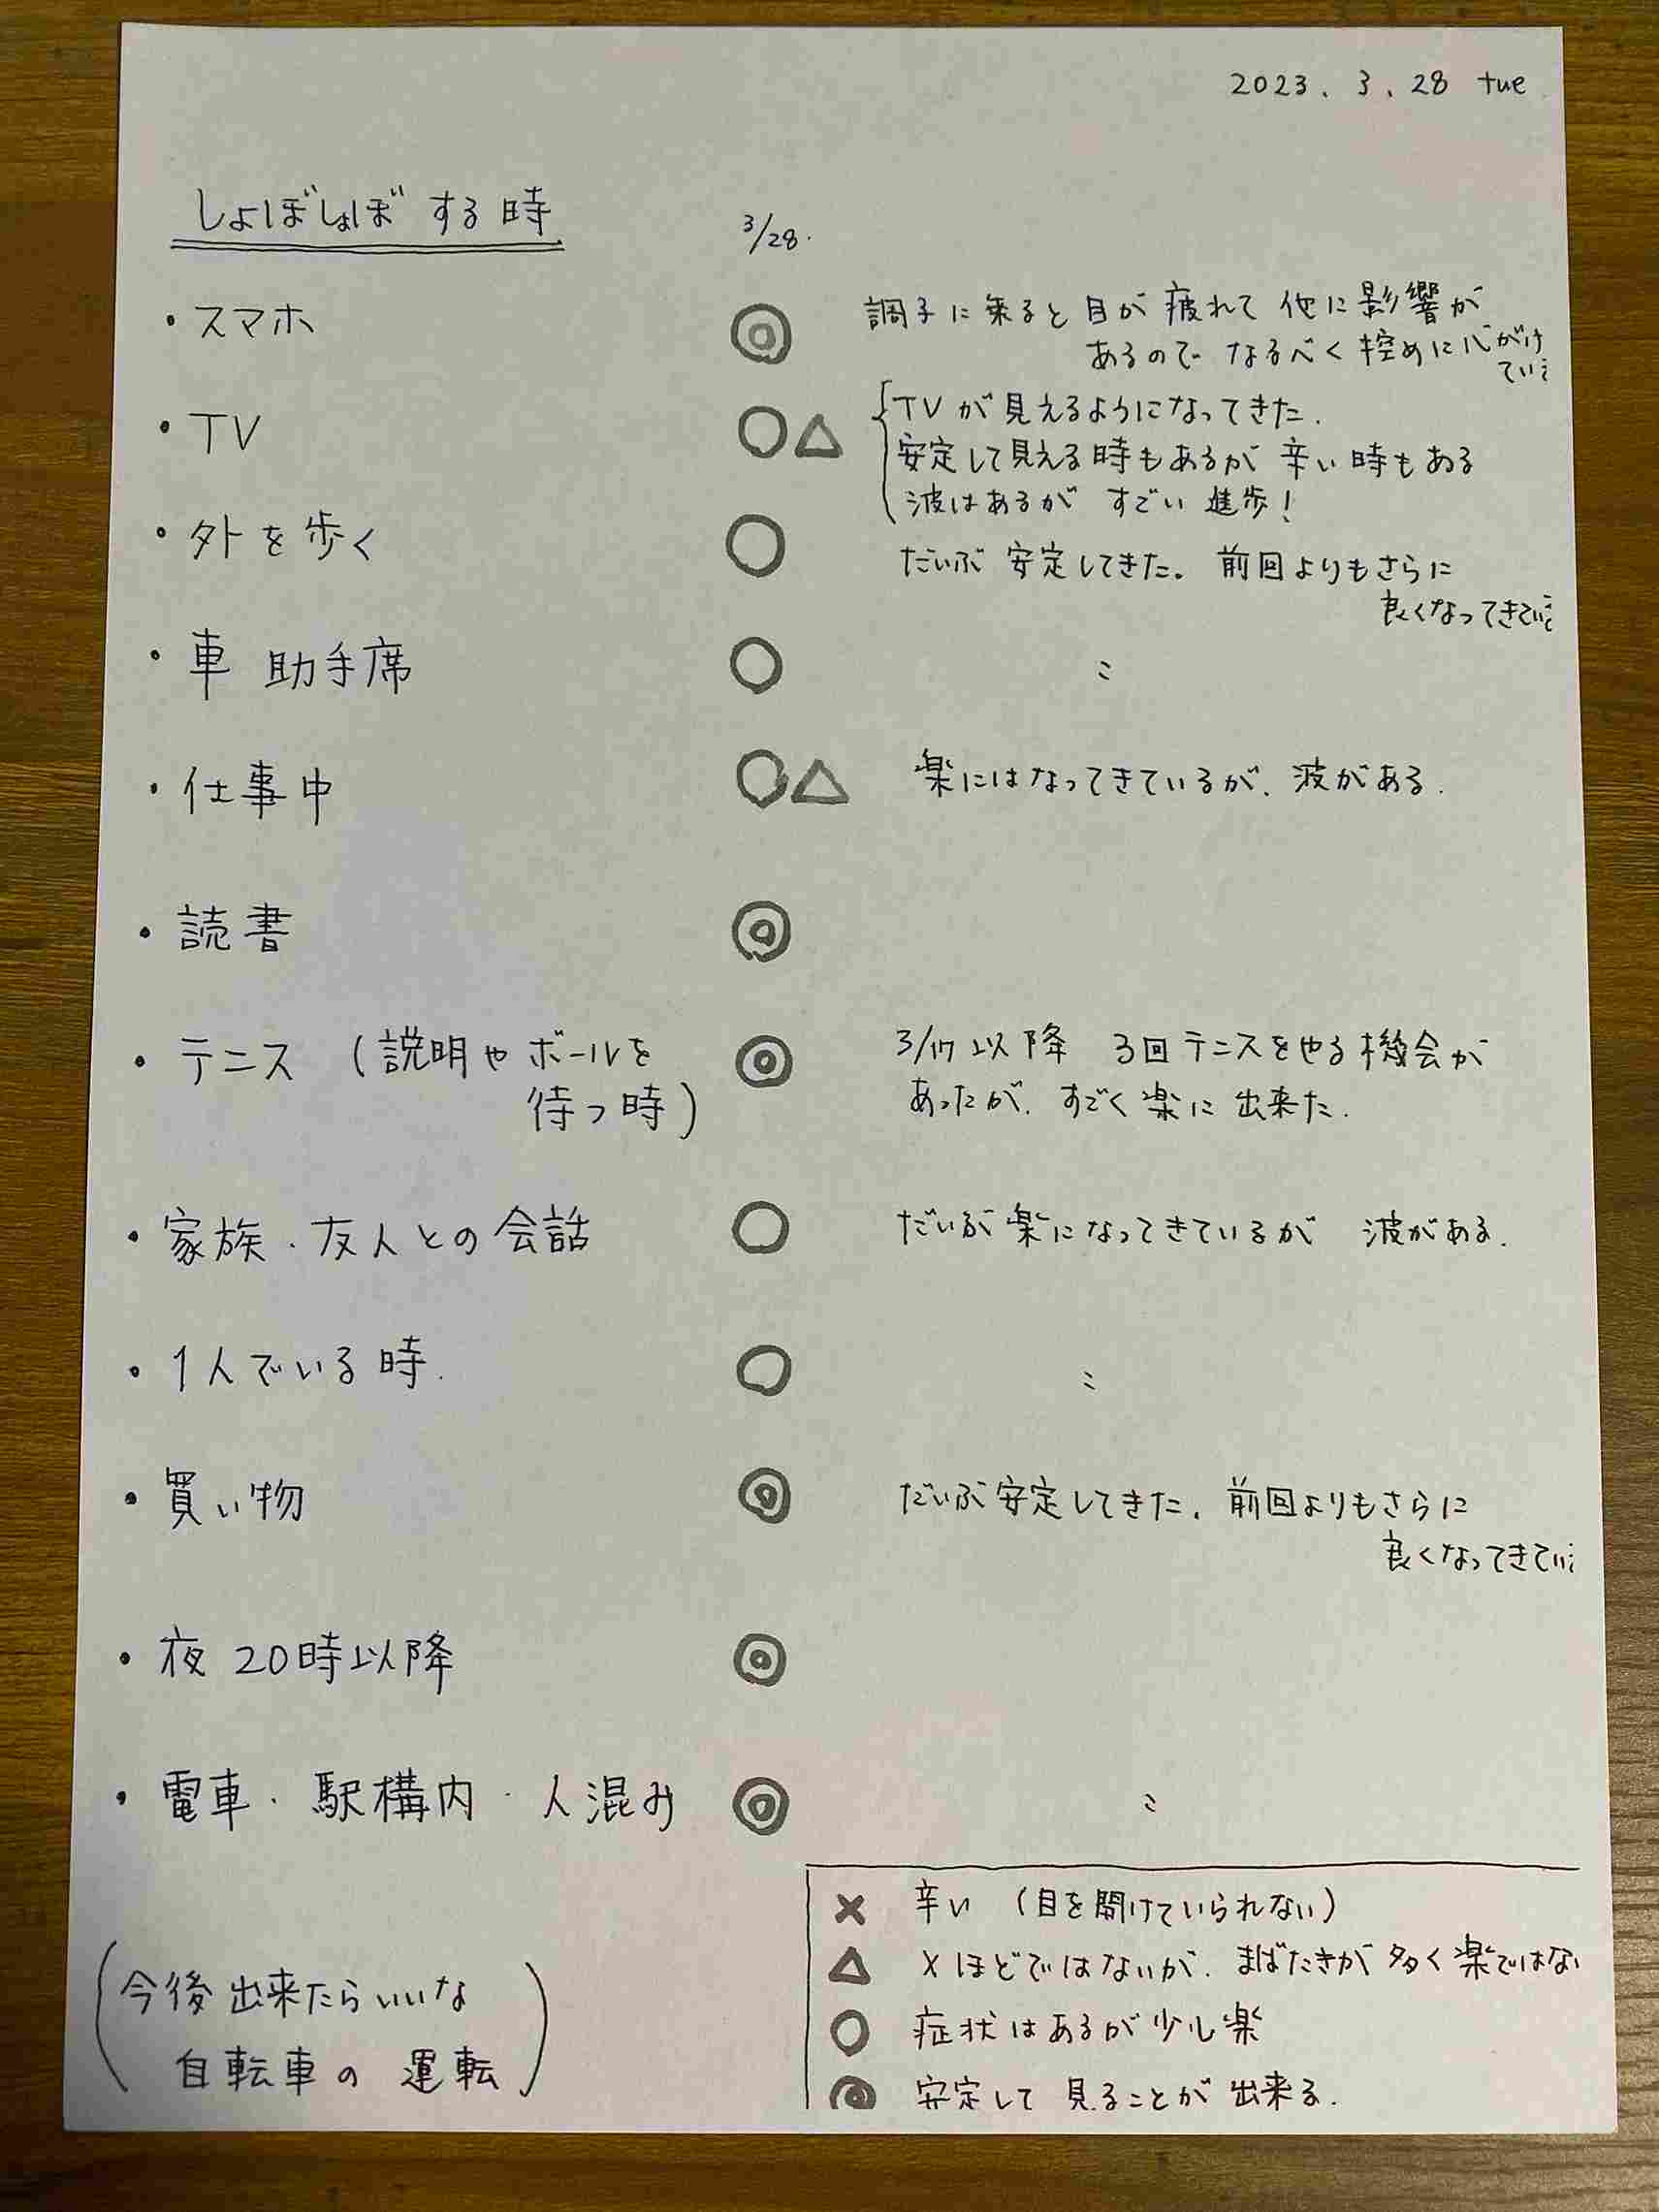 2023. 3. 28 tue
しょぼしょぼ する時
3/28.
・スマホ ◎ 調子に乗ると目が疲れて 他に影響が
あるので なるべく控めに心がけ
てい
・TV ○△ TVが見えるようになってきた.
安定して見える時もあるが 辛い時もある
波はあるが すごい進歩!
・外を歩く ○ だいぶ 安定してきた. 前回よりもさらに
良くなってきてい
・車 助手席 ○ 〃
・仕事中 ○△ 楽にはなってきているが、波がある.
・読書 ◎
・テニス (説明やボールを ◎ 3/17以降 3回テニスをやる機会が
待つ時) あったが、すごく楽に出来た.
・家族・友人との会話 ○ だいぶ楽になってきているが 波がある.
・1人でいる時. ○ 〃
・買い物 ◎ だいぶ安定してきた. 前回よりもさらに
良くなってきてい
・夜 20時以降 ◎
・電車・駅構内・人混み ◎ 〃
× 辛い (目を開けていられない)
△ ×ほどではないが、まばたきが多く楽ではな
○ 症状はあるが少し楽
◎ 安定して見ることが出来る.
(今後出来たらいいな
自転車の 運転)